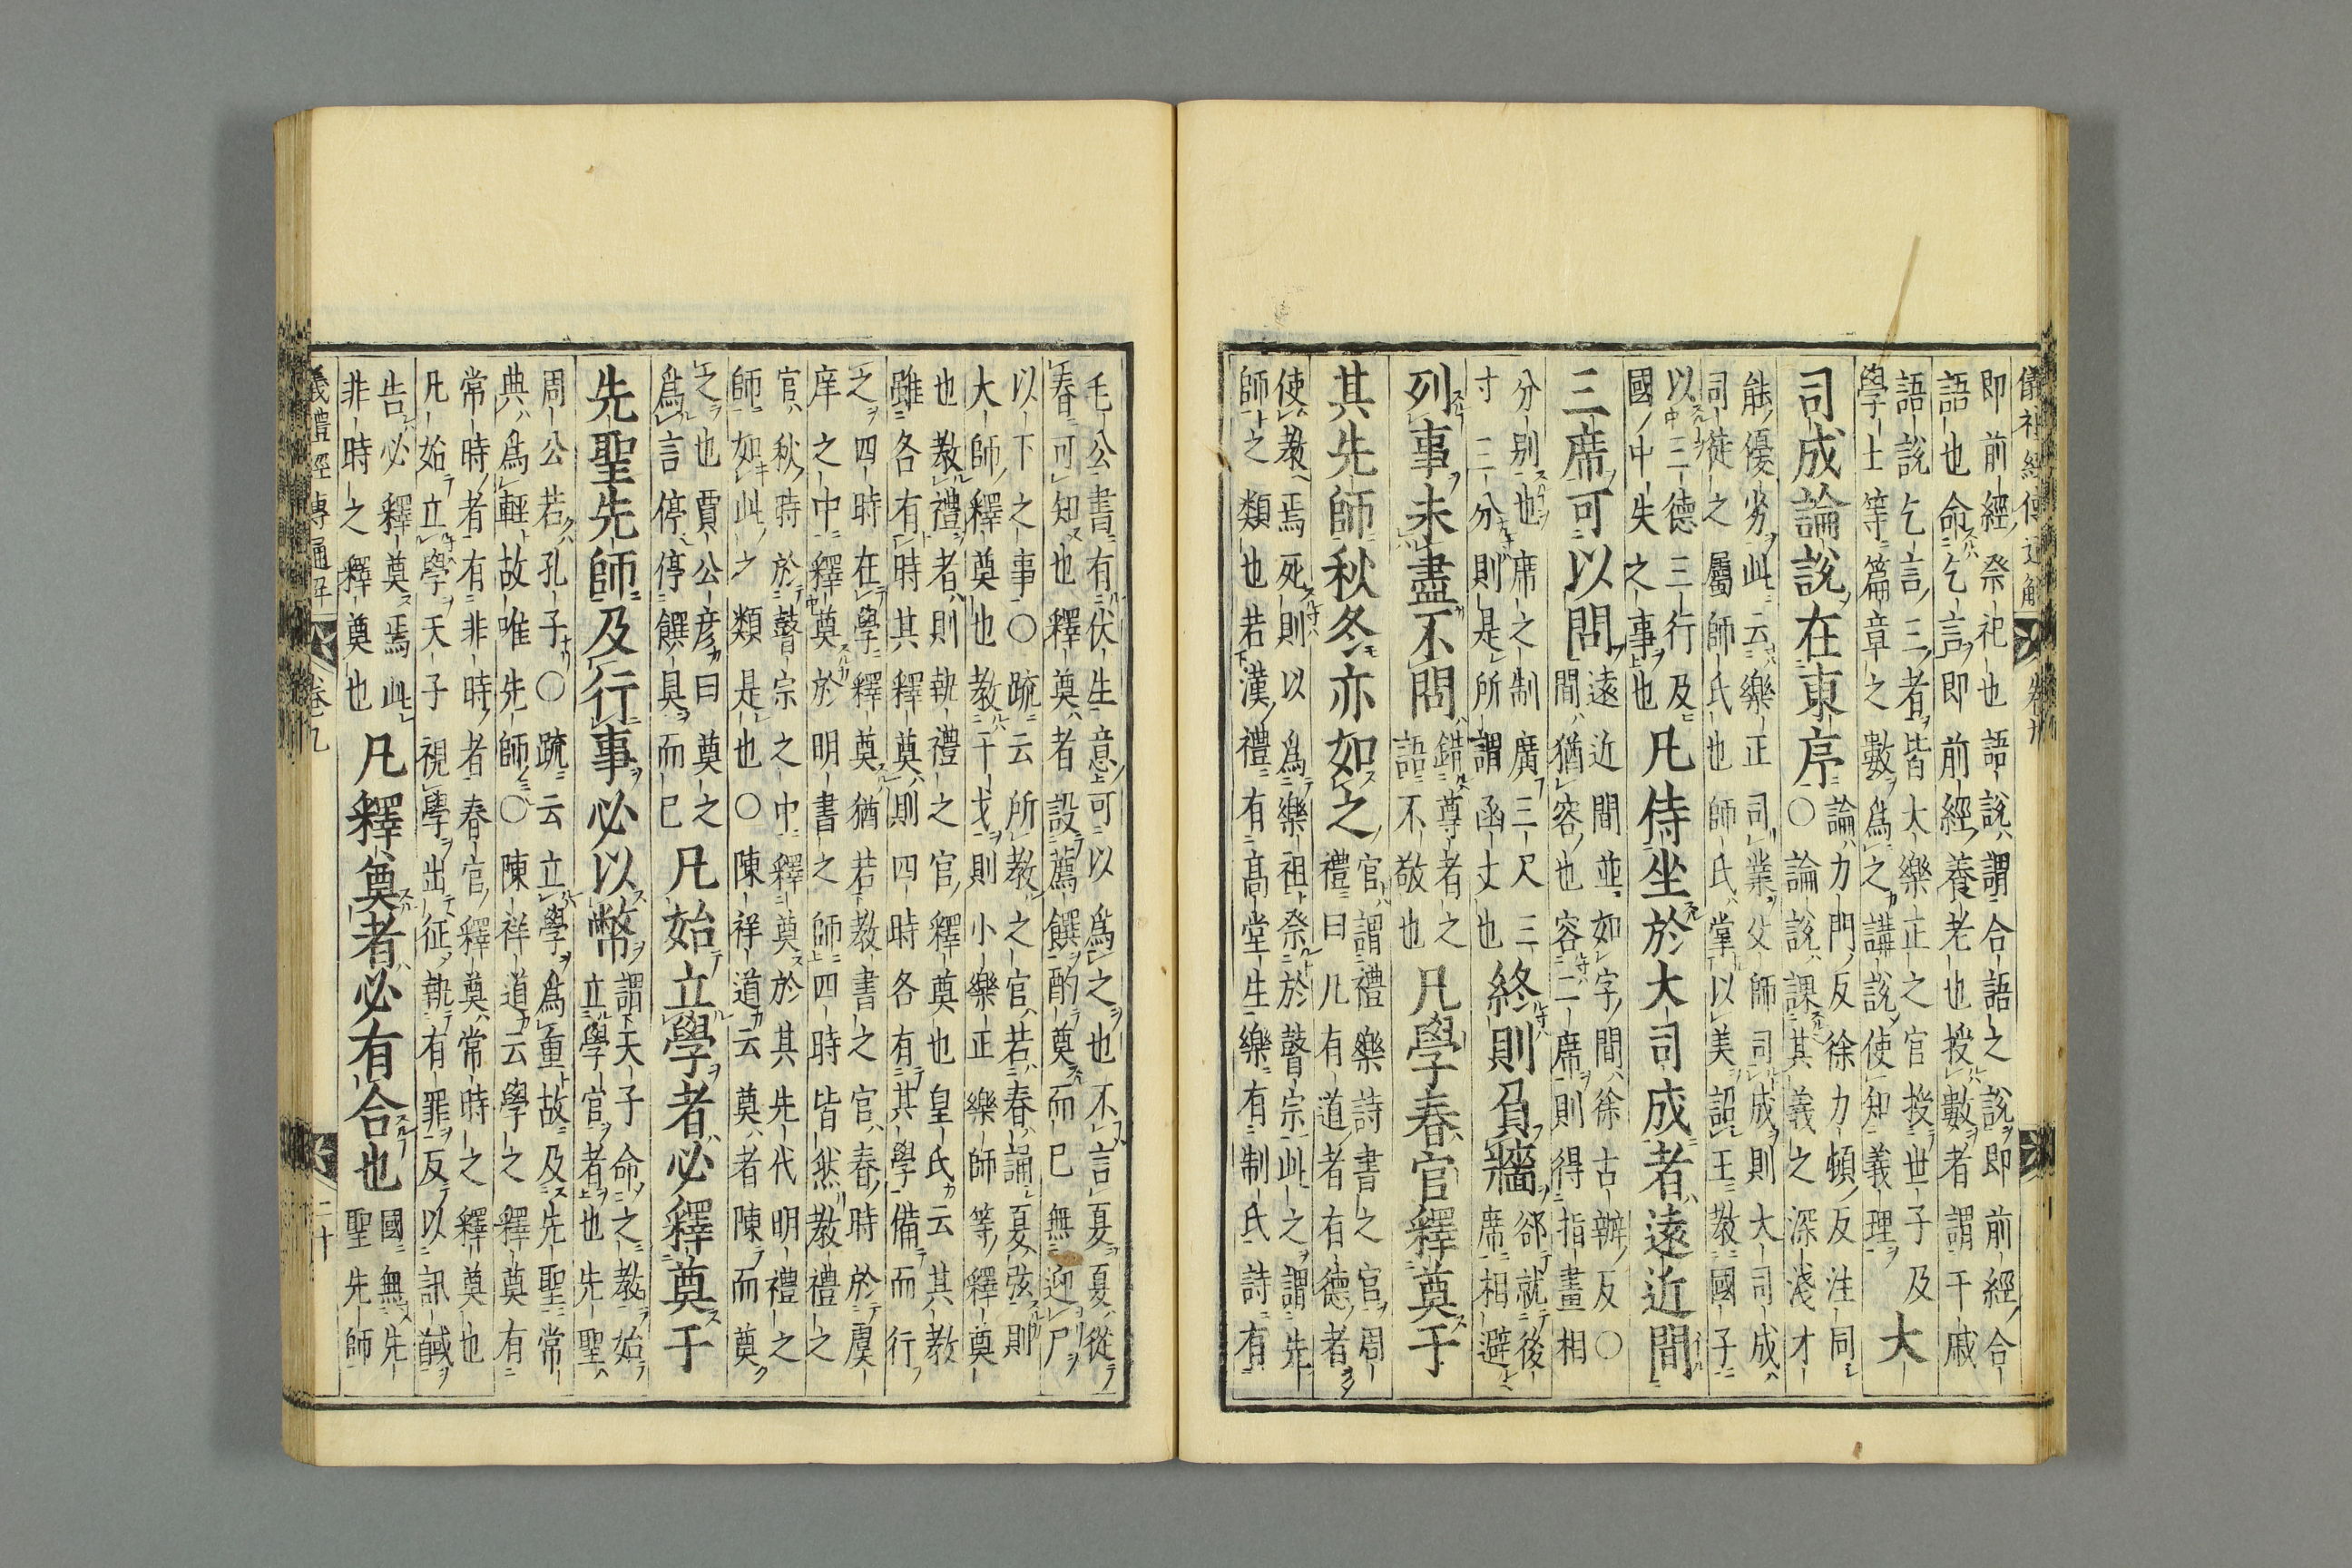 即前經祭祀也語說謂合語之說即前經合
語也命乞言即前經養老也授數者謂干戚
語說乞言三者皆大樂正之官授世子及
學士等篇章之數爲之講說使知義理
大
司成論說在東序
論力門反徐力頓反注同
○論說課其義之深淺才
能優劣此云樂正司業父師司成則大司成
司徒之屬師氏也師氏掌以美詔王教國子
以三德三行及
國中失之事也
凡侍坐於大司成者遠近間
三席可以問
遠近間並如字間徐古辧反○
間猶容也容二席則得指畫相
分别也席之制廣三尺三
寸三分則是所謂函丈也
終則負牆
郤就後
席相避
列事未盡不問
錯尊者之
語不敬也
凡學春官釋奠于
其先師秋冬亦如之
官謂禮樂詩書之官周
禮曰凡有道者有德者
使教焉死則以爲樂祖祭於瞽宗此之謂先
師之類也若漢禮有高堂生樂有制氏詩有
毛公書有伏生意可以爲之也不言夏夏從
春可知也釋奠者設薦饌酌奠而已無迎尸
以下之事○疏云所教之官若春誦夏弦則
大師釋奠也教干戈則小樂正樂師等釋奠
也教禮者則執禮之官釋奠也皇氏云其教
雖各有時其釋奠則四時各有其學備而行
之四時在學釋奠猶若教書之官春時於虞
庠之中釋奠於明書之師四時皆然教禮之
官秋時於瞽宗之中釋奠於其先代明禮之
師如此之類是也○陳祥道云奠者陳而奠
之也賈公彦曰奠之
爲言停停饌具而已
凡始立學者必釋奠于
先聖先師及行事必以幣
謂天子命之教始
立學官者也先聖
周公若孔子○疏云立學爲重故及先聖常
典爲輕故唯先師○陳祥道云學之釋奠有
常時者有非時者春官釋奠常時之釋奠也
凡始立學天子視學出征執有罪反以訊馘
告必釋奠焉此
非時之釋奠也
凡釋奠者必有合也
國無先
聖先師
義禮經傳通解 卷九 二十